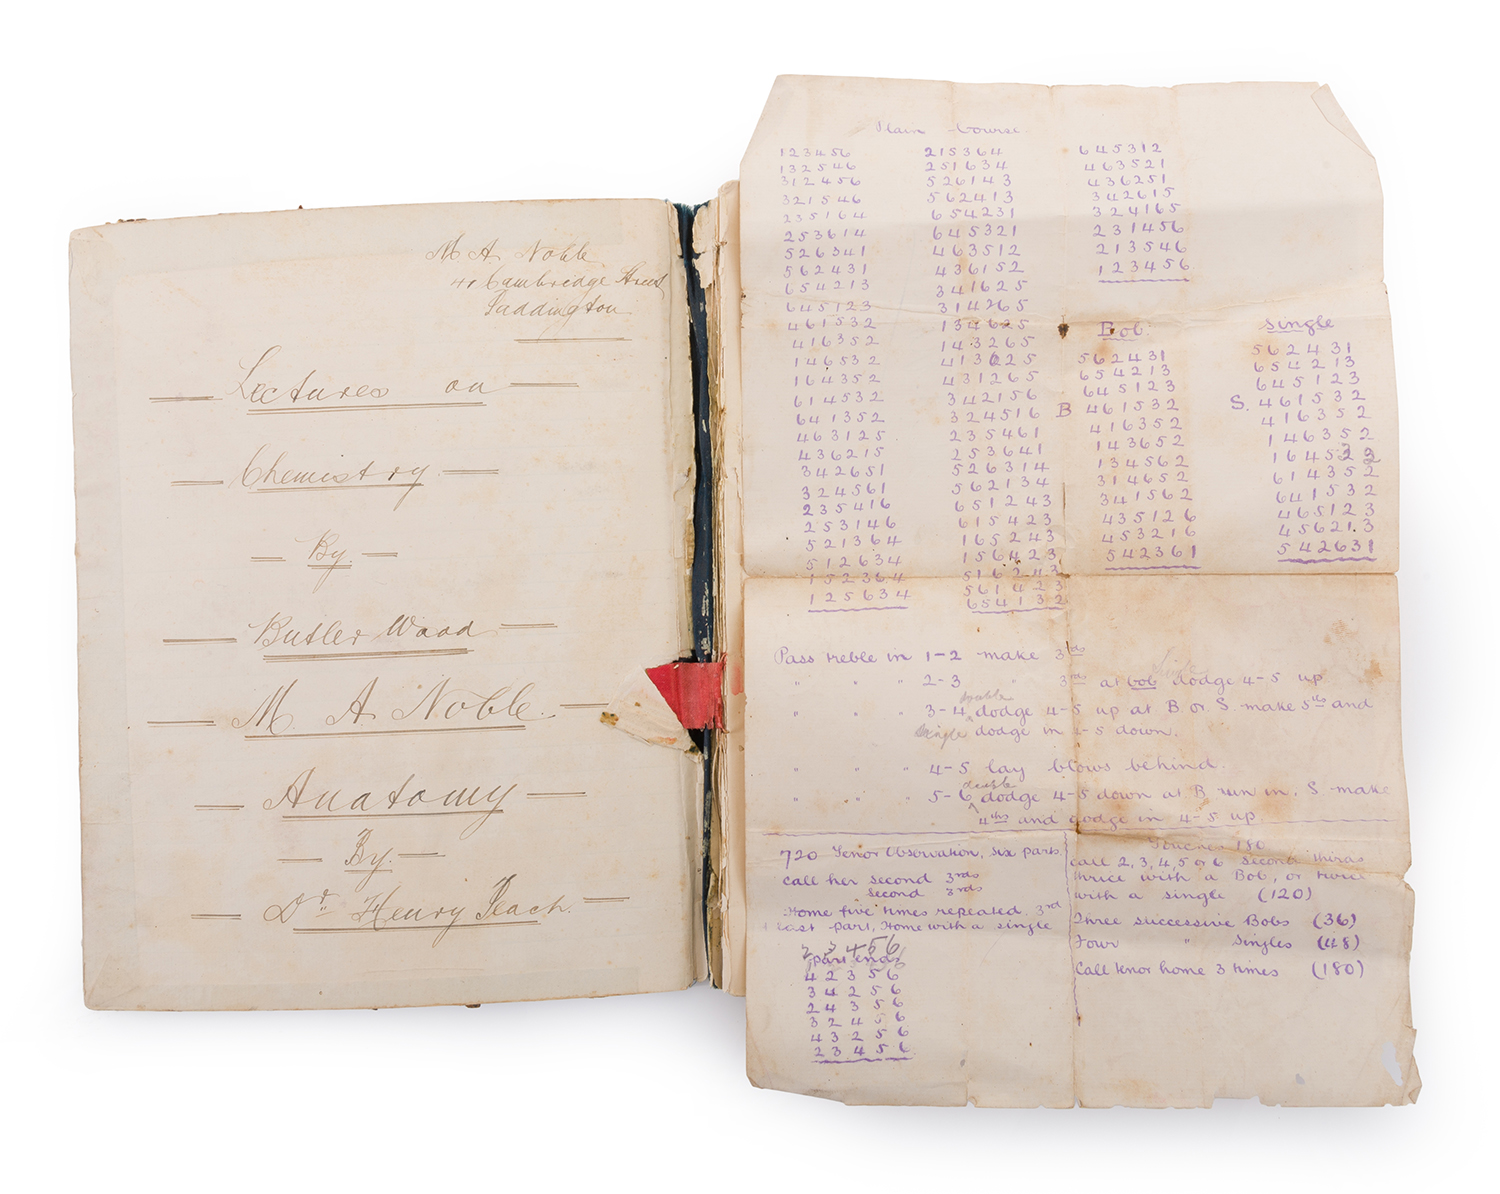 M A Noble
41 Cambridge Street
Paddington
Lectures on
Chemistry
By
Butler Wood
M A Noble
Anatomy
By
Dr. Henry Peach.
Plain Course
123456
132546
312456
321546
235164
253614
526341
562431
654213
645123
461532
416352
146532
164352
614532
641352
463125
436215
342651
324561
235416
253146
521364
512634
152364
125634
215364
251634
526143
562413
654231
645321
463512
436152
341625
314265
134625
143265
413625
431265
342156
324516
235461
253641
526314
562134
651243
615423
165243
156423
516243
561423
654132
645312
463521
436251
342615
324165
231456
213546
123456
Bob.
562431
654213
645123
B 461532
416352
143652
134562
314652
341562
435126
453216
542361
Single
562431
654213
645123
S. 461532
416352
146352
1645
614352
641532
465123
456213
542631
Pass treble in 1-2 make 3rds
" " " 2-3 " 3rds at bob dodge 4-5 up
" " " 3-4 double dodge 4-5 up at B or S make 5ths and
single dodge in 4-5 down.
" " " 4-5 lay blows behind.
" " " 5-6 double dodge 4-5 down at B run in. S make
4ths and dodge in 4-5 up.
720 Tenor Observation, six parts.
Call her second 3rds
second 3rds
Home five times repeated. 3rd
last part, Home with a single
2 3 4 5 6
part ends
4 2 3 5 6
3 4 2 5 6
2 4 3 5 6
3 2 4 5 6
4 3 2 5 6
2 3 4 5 6
Touches 180
Call 2, 3, 4, 5 or 6 second thirds
thrice with a Bob, or twice
with a single (120)
Three successive Bobs (36)
Four " Singles (48)
Call tenor home 3 times (180)